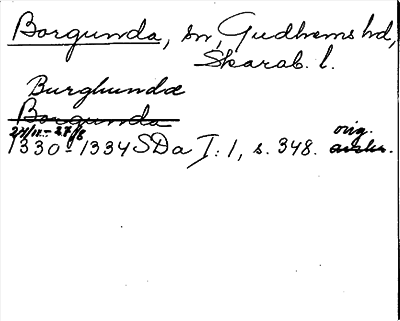 Borgunda, sn, Gudhems hd,
Skarab. l.
Burghundæ
Borgunda
24/11 - 27/8
1330 - 1334 SDa I: 1, s. 348. orig.
avskr.